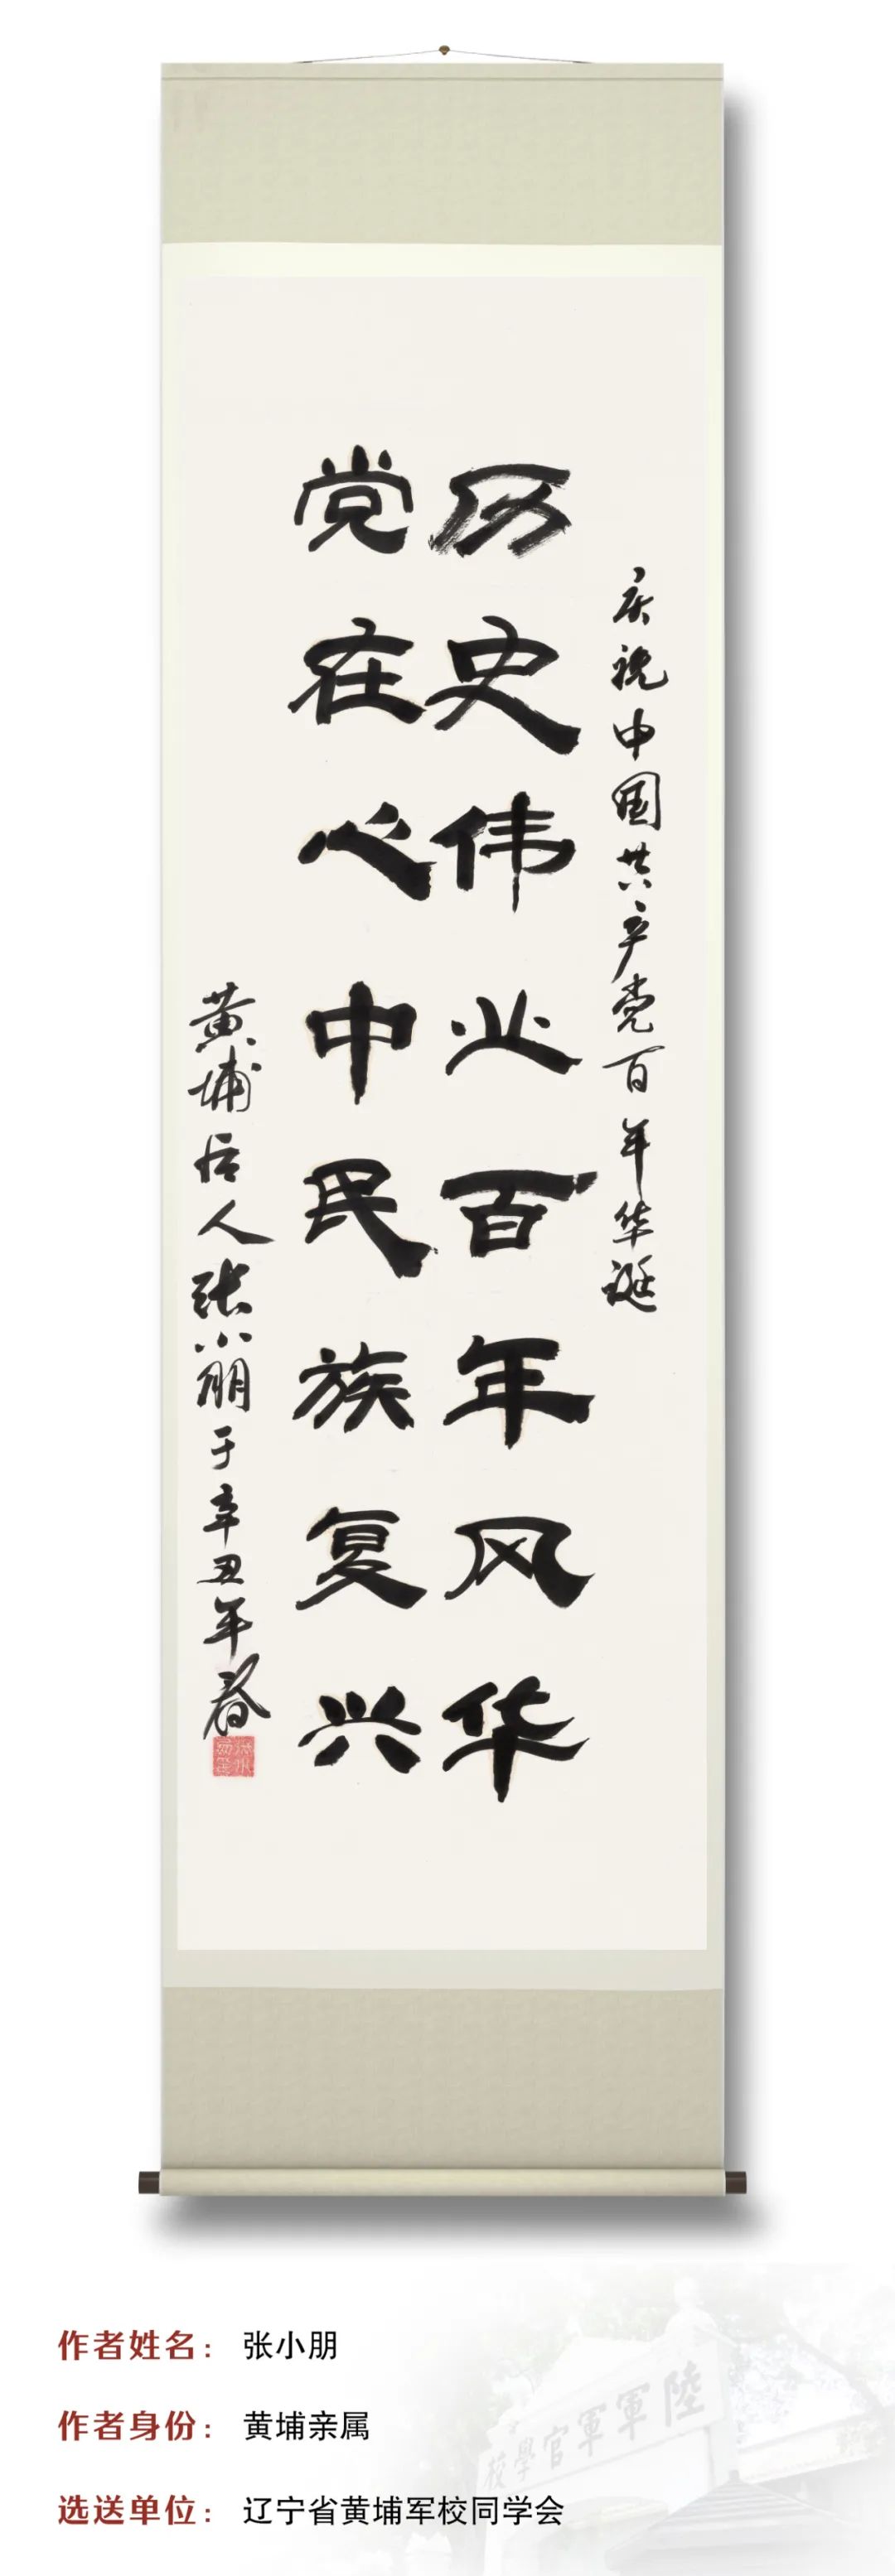 庆祝中国共产党百年华诞
历史伟业百年风华
党在心中民族复兴
黄埔后人张小朋于辛丑年春
作者姓名：张小朋
作者身份：黄埔亲属
选送单位：辽宁省黄埔军校同学会
陸軍軍官學校